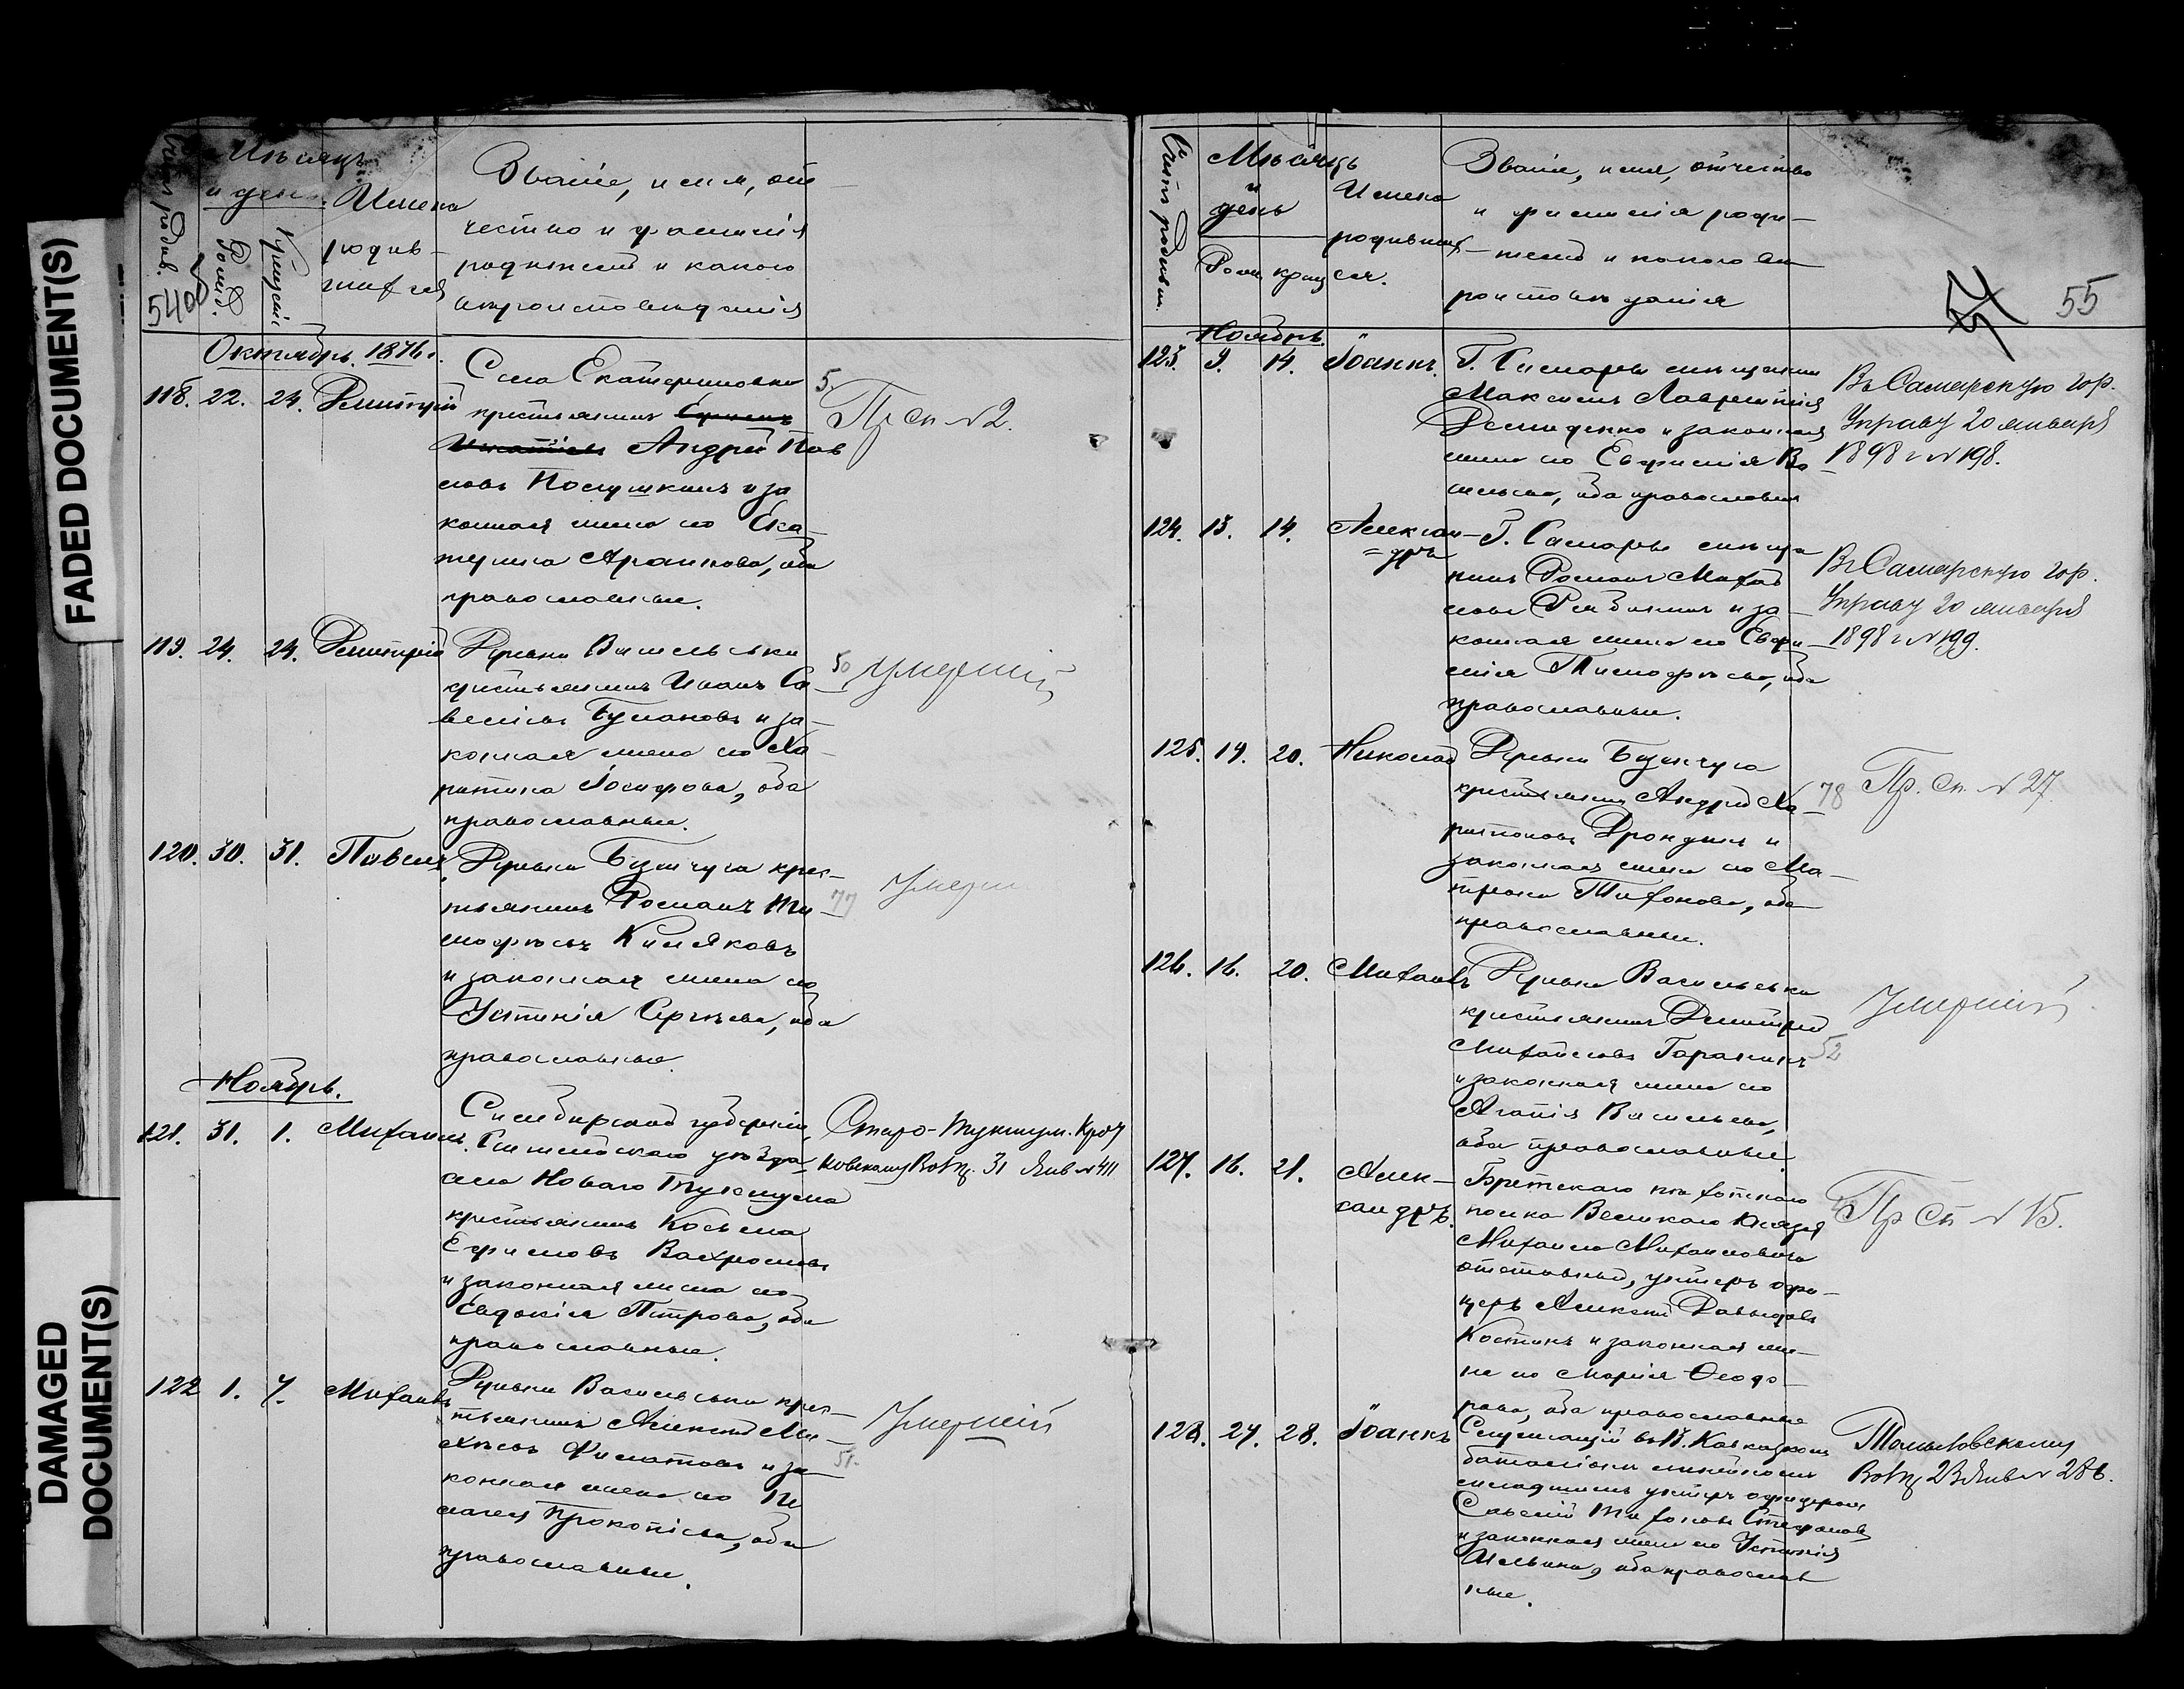 FADED DOCUMENT(S)
DAMAGED
DOCUMENT(S)
Мѣсяцъ
и день.
Счетъ родив.
Родив.
Крещенія
Имена
родив-
шихся
Званіе, имя, от-
чество и фамилія
родителей и какого
вѣроисповѣданія
540б
Октябрь. 1876 г.
118. 22. 24. Димитрій
Села Екатериновки
крестьянинъ
Андрей Пав
ловъ и за
конная жена его Ека-
терина, оба
православные.
5.
Пр Сп № 2.
119. 24. 24. Димитрій
Дерьвни Васильевки
крестьянинъ Иванъ Са-
веліевъ Булановъ и за-
конная жена его Ха-
ритина Іосифова, оба
православные.
50
Умершій
120. 30. 31. Павелъ
Дерьвни Безенчуга крес-
тьянинъ Романъ Ти-
мофѣевъ Кисляковъ
и законная жена его
Устинія Сергѣева, оба
православные.
77
Умерш
Ноябрь.
121. 31. 1. Михаилъ
Симбирской губерніи,
Сенгилѣевскаго уѣзда
села Новаго Тукшума
крестьянинъ Косьма
Ефимовъ
и законная жена его
Евдокія Петрова, оба
православные.
Старо-Тукшум.
Вол. Пр. 31 Янв № 411
122 1. 7. Михаилъ
Дерьвни Васильевки крес-
тьянинъ Алексѣй Ми-
хѣевъ Филатовъ и за-
конная жена его Пе
лагея Прокопіева, оба
православные.
51.
Умершій
Счетъ родивш.
Мѣсяцъ
и
день
Родив крещ
Имена
родивших
ся.
Званіе, имя, отчество
и фамилія роди-
телей и какого вѣ-
роисповѣданія
54 55
Ноябрь.
123. 9. 14. Іоаннъ.
Г. Самары мѣщанинъ
Максимъ Лаврентіев
Демиденко и законная
жена его Евфимія Ва
сильева, оба православные
Въ Самарскую гор.
Управу 20 января
1898 г № 198.
124. 13. 14. Алексан-
=дръ
Г. Самары мѣща
нинъ Романъ Михай
ловъ Рябининъ и за-
конная жена его Евфи-
мія Тимофѣева, оба
православные.
Въ Самарскую гор.
Управу 20 января
1898 г № 199.
125. 14. 20. Николай
Дерьвни Безенчуга
крестьянинъ Андрей Ха-
ритоновъ Дрондинъ и
законная жена его Ма-
трона Тихонова, оба
православные.
78
Пр. Сп № 27
126. 16. 20. Михаилъ
Дерьвни Васильевки
крестьянинъ Димитрій
Михайловъ Гаранинъ
и законная жена его
Агапія Васильева,
оба православные.
52
Умершій
127. 16. 21. Алек-
сандръ.
Брестскаго пѣхотнаго
полка Великаго Князя
Михаила Михаиловича
отставный, унтеръ офи-
церъ Алексѣй Давыдовъ
Костинъ и законная же-
на его Марія Ѳеодо-
рова, оба православные
Пр Сп № 15.
128. 27. 28. Іоаннъ
Служащій въ Кавказскомъ
баталіонѣ линейномъ
младшимъ унтеръ офицеромъ
Савелій Тихоновъ Степановъ
и законная жена его Устинія
Ильина, оба православ
ные.
Томыловскому
Вол. Пр 23 Янв № 286.